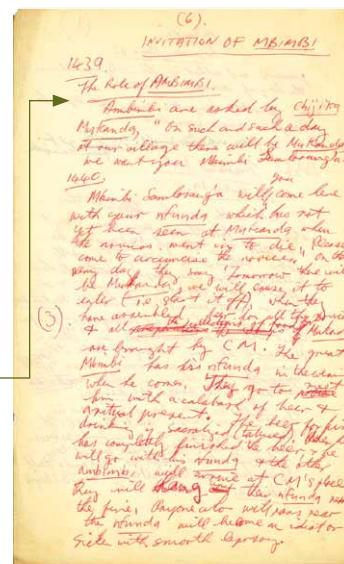 (6).
INVITATION OF MBIMBI
1439.
The Role of AMBIMBI.
Ambimbi are asked by Chijika
Mukanda, "On such and such a day
at our village there will be Mukanda
we want you Mbimbi Sambosanga.
1440. you
Mbimbi Sambosanga will come here
with your nfunda which has not
yet been seen at Mukanda when
the novices went in to die, Please
come to circumcise the novices", on the
day they say 'Tomorrow there will
be Mukanda, we will cause it to
(i.e. start it off), when they
have assembled beer, for all the
(3) & all of food Mukanda
are brought by C.M. The great
Mbimbi has his nfunda in the
when he comes. They go to meet
him with a calabash of beer &
a ritual present. The beer for
drinking is sacred, tabued. When he
has completely finished the beer, he
will go with his nfunda & the other
ambimbi will arrive at C.M's place
They will hang their nfunda near
the fire, Anyone who will pass near
the nfunda will become an idiot or
sicken with smooth leprosy.